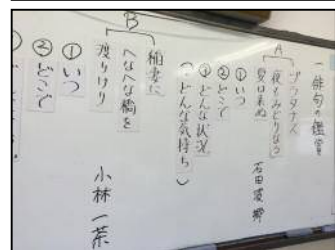 一 俳句の鑑賞
A
プラタナス
夜もみどりなる
夏は来ぬ
石田波郷
① いつ
② どこで
① どんな状況
(・どんな気持ち)
B
稲妻に
へなへな橋を
渡りけり
小林一茶
① いつ
② どこで